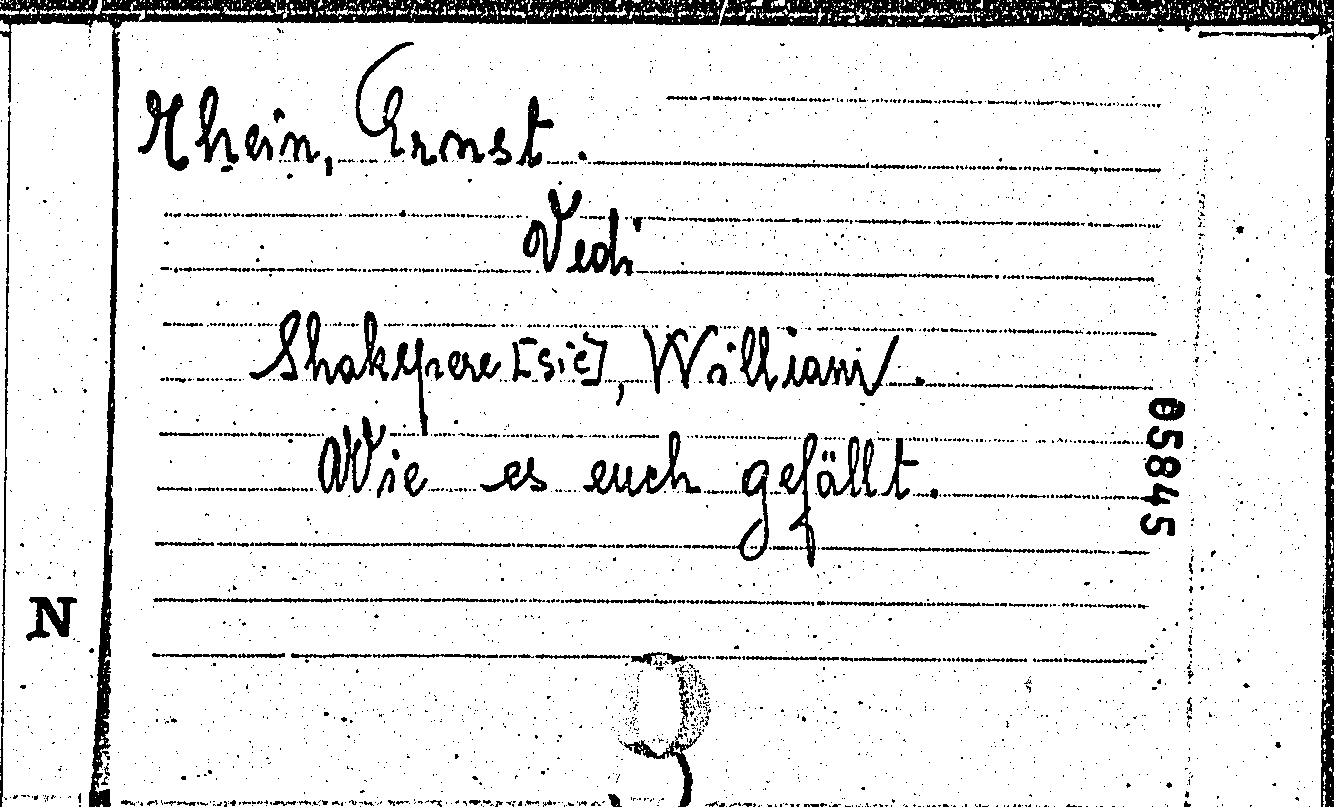 Rhein, Ernst.
Vedi
Shakespere [sic], William.
Wie es euch gefällt.
05845
N